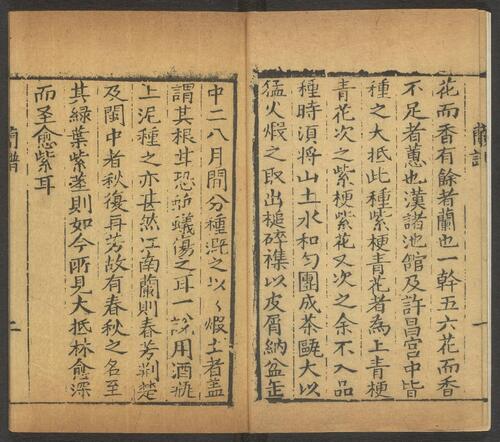 花而香有餘者蘭也一幹五六花而香
不足者蕙也漢諸池館及許昌宮中皆
種之大抵此種紫梗青花者為上青梗
青花次之紫梗紫花又次之余不入品
種時須將山土水和勻團成茶甌大以
猛火煅之取出槌碎襍以皮屑納盆缶
中二八月間分種溉之以〻煅土者盖
謂其根甘恐蚯蟻傷之耳一說用酒瓶
上泥種之亦甚然江南蘭則春芳荆楚
及閩中者秋復再芳故有春秋之名至
其綠葉紫莖則如今所見大抵林愈深
而至愈紫耳
蘭譜
二